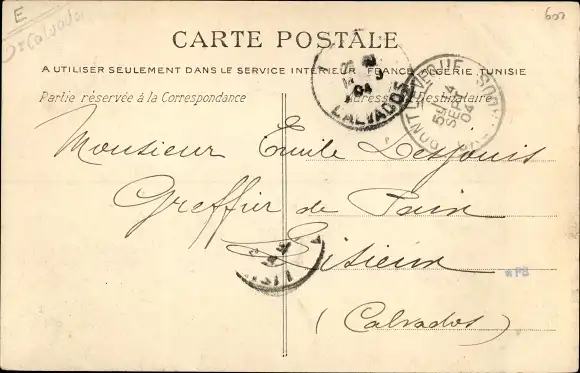 E
Calvados
CARTE POSTALE
A UTILISER SEULEMENT DANS LE SERVICE INTÉRIEUR FRANCE ALGÉRIE TUNISIE
Partie réservée à la Correspondance
Adresse du Destinataire
04
CALVADOS
PONT L'EVEQUE
SEPT
04
Monsieur Emile Desjouis
Greffier de Paix
Lisieux
(Calvados)